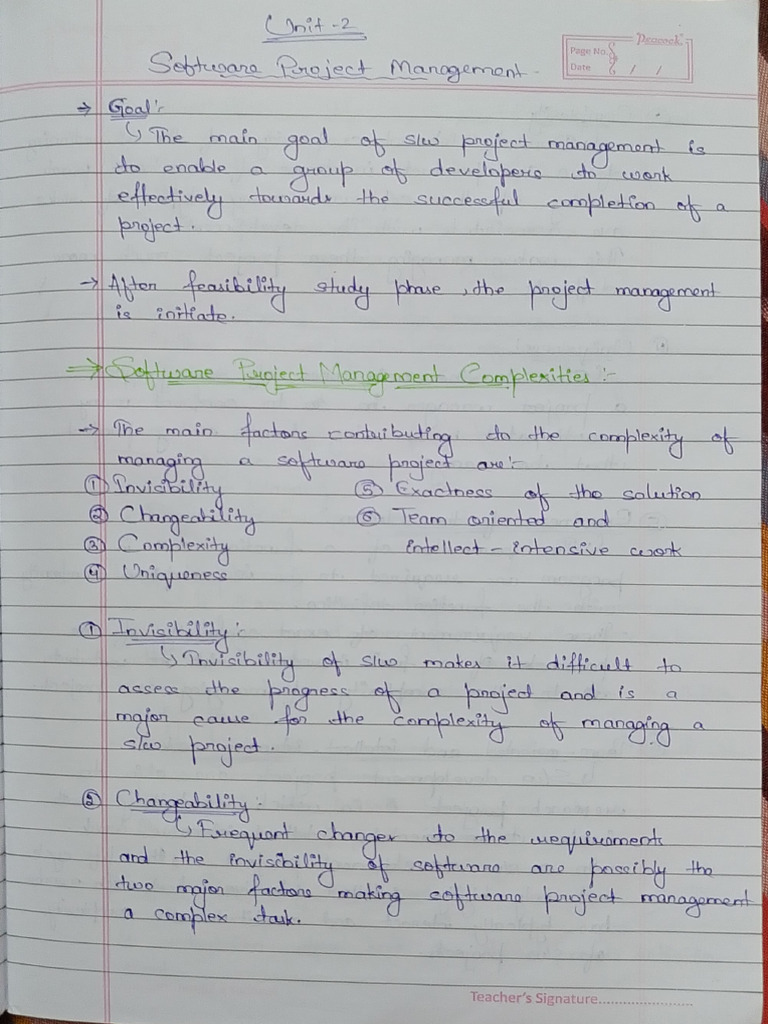 Unit-2
Peacock
Page No.
Date / /
Software Project Management
→ Goal:
↳ The main goal of s/w project management is
to enable a group of developers to work
effectively towards the successful completion of a
project.
→ After feasibility study phase, the project management
is initiate.
⇒ Software Project Management Complexities :-
→ The main factors contributing to the complexity of
managing a software project are:-
① Invisibility ⑤ Exactness of the solution
② Changeability ⑥ Team oriented and
③ Complexity intellect-intensive work
④ Uniqueness
① Invisibility:
↳ Invisibility of s/w makes it difficult to
assess the progress of a project and is a
major cause for the complexity of managing a
s/w project.
② Changeability:
↳ Frequent changes to the requirements
and the invisibility of software are possibly the
two major factors making software project management
a complex task.
Teacher's Signature........................